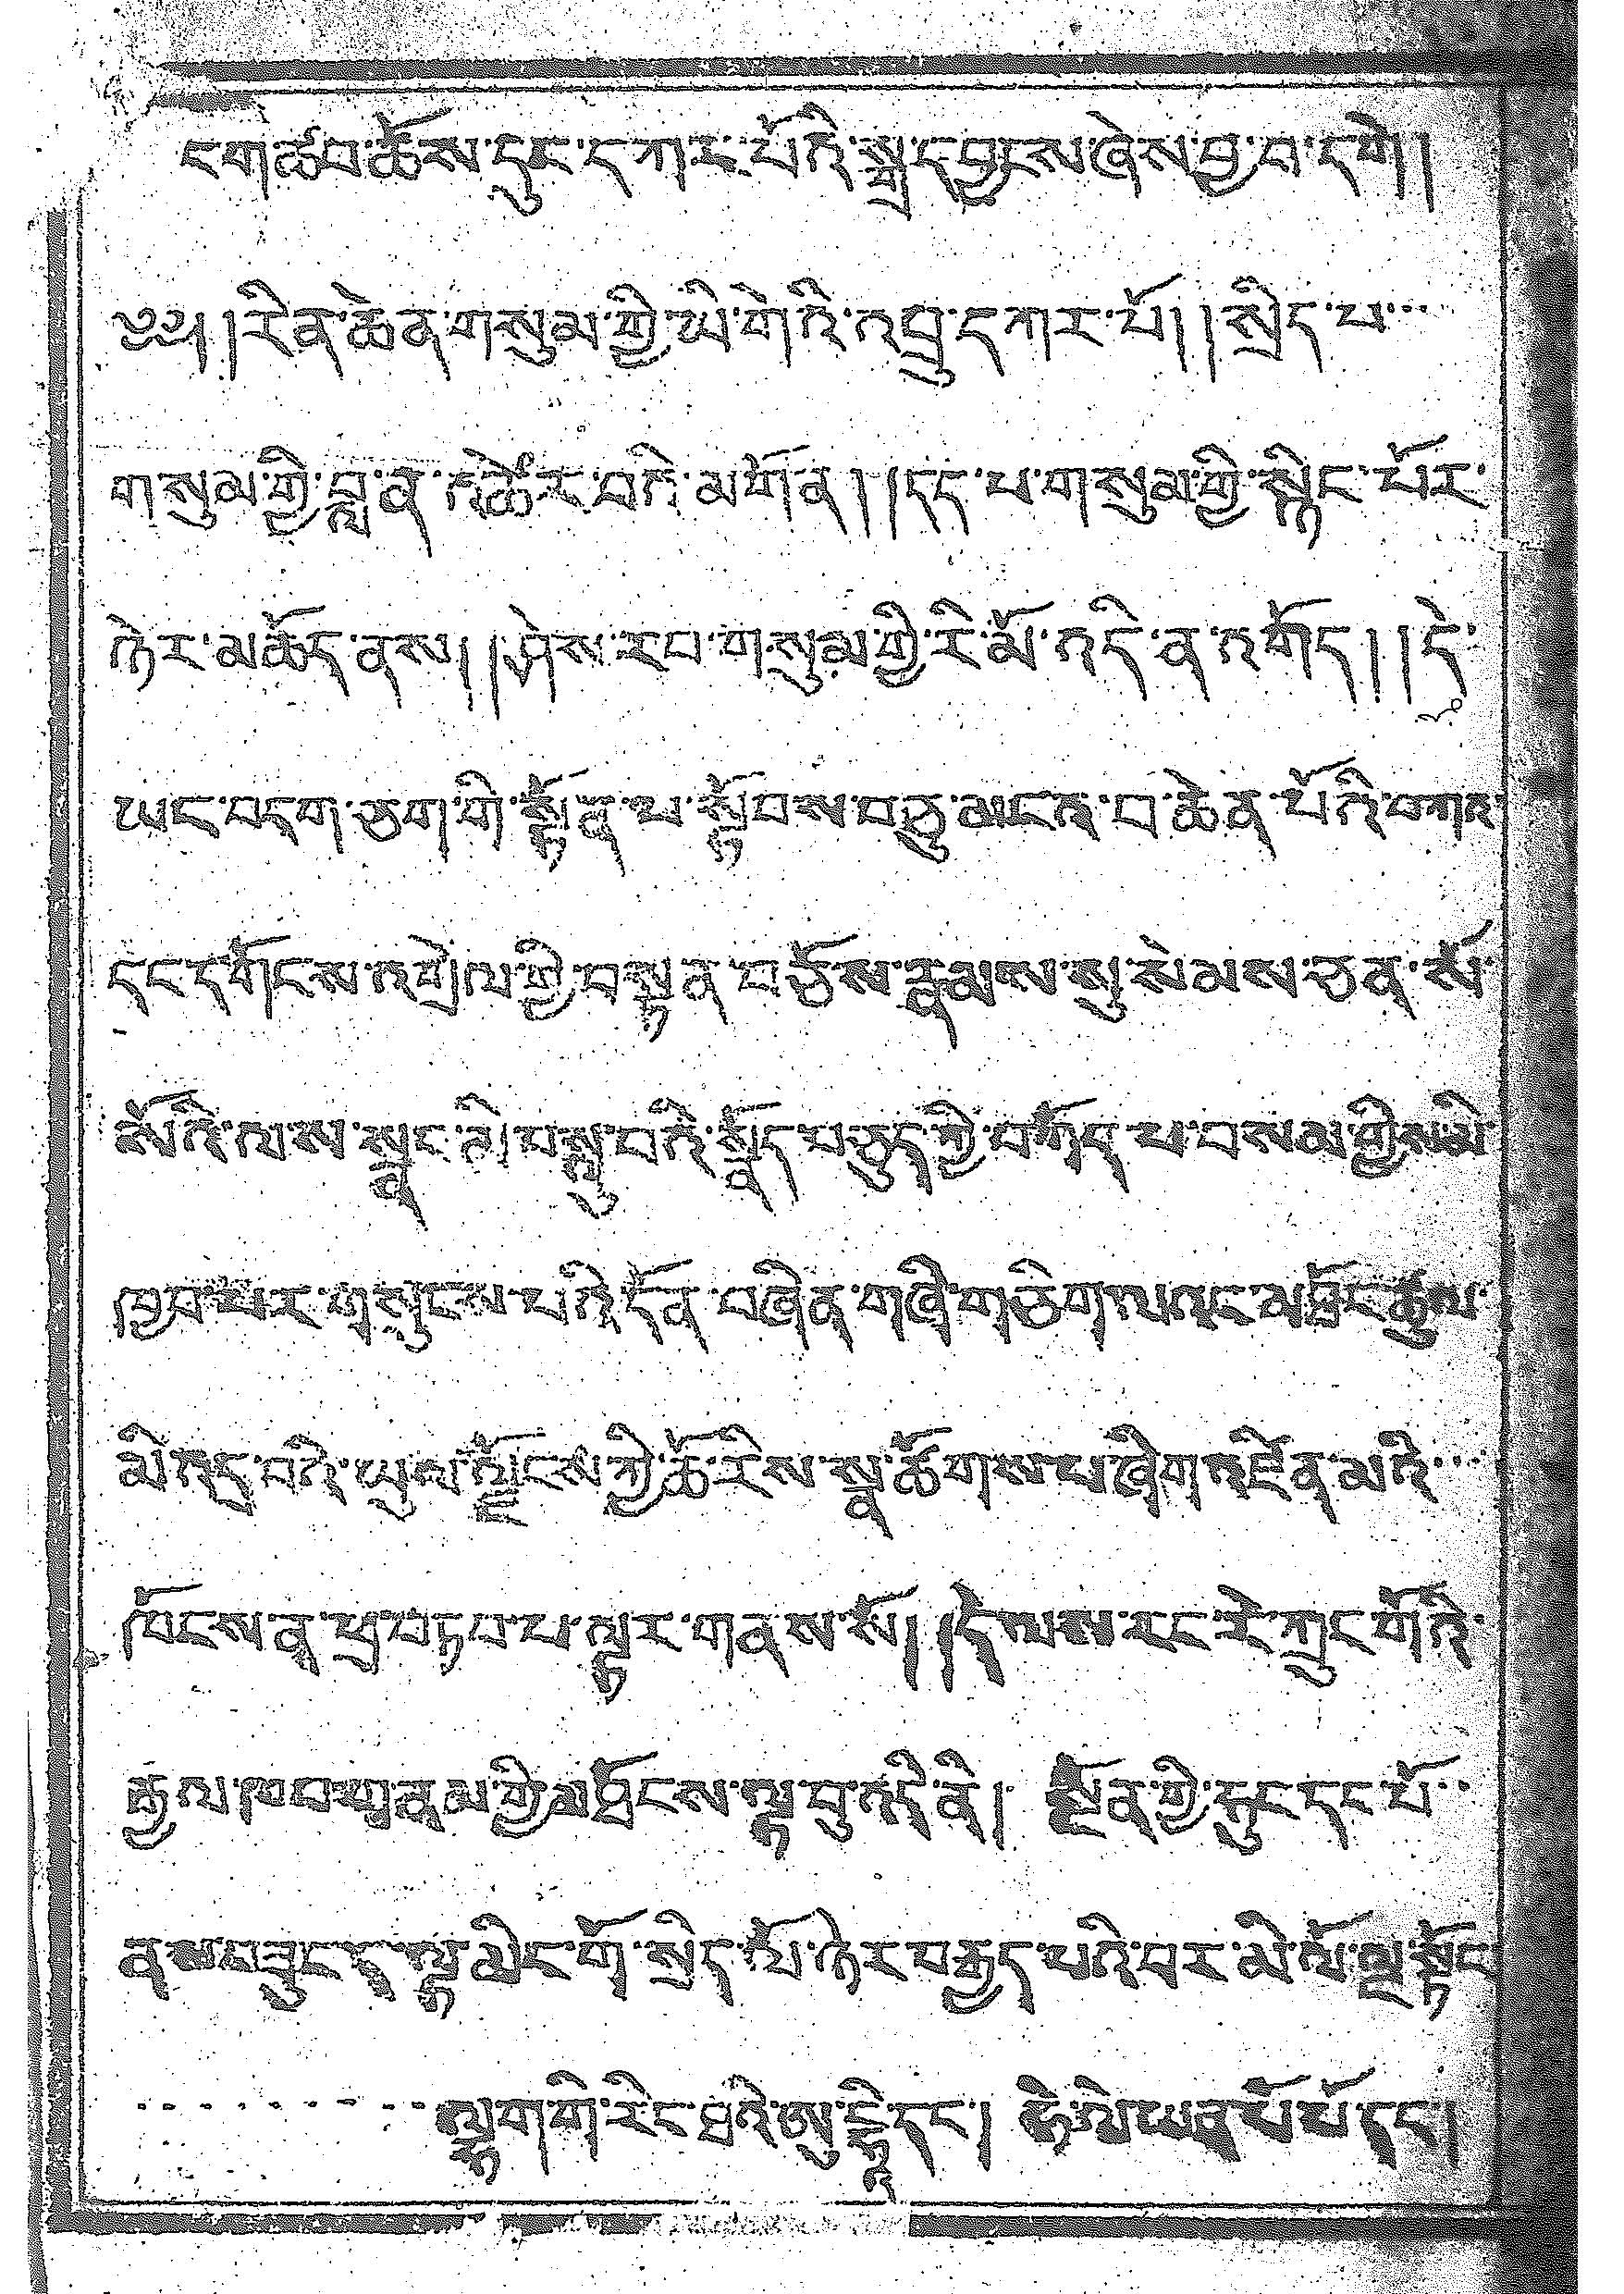 ངག་ཆབ་ཆོས་དུང་དཀར་པོའི་སྒྲ་དབྱངས་ཞེས་བྱ་བ་དགེ།
༄༅། །རིན་ཆེན་གསུམ་གྱི་ཡི་གེའི་འབྲུ་དཀར་པོ། །སྲིད་པ་
གསུམ་གྱི་བླ་ན་འཚེར་བའི་མགོན། །དད་པ་གསུམ་གྱི་སྙིང་པོར་
ཉེར་མཆོད་ནས། །ཤེས་རབ་གསུམ་གྱི་རི་མོ་འདི་ན་འགོད། །དེ་
ཡང་བདག་ཅག་གི་སྟོན་པ་སྟོབས་བཅུ་མངའ་བ་ཆེན་པོའི་བཀའ་
དང་དགོངས་འགྲེལ་གྱི་བསྟན་བཅོས་རྣམས་སུ་སེམས་ཅན་སོ་
སོའི་ལས་སྣང་ནི་བསྟུ་བའི་སྣོད་བཅུད་ཀྱི་བཀོད་པ་བསམ་གྱིས་མི་
ཁྱབ་པར་གསུངས་པའི་དོན་བཞིན་གཞི་གཅིག་ལའང་མཐོང་ཚུལ་
མི་འདྲ་བའི་ཡུལ་ལྗོངས་ཀྱི་ཆོ་རིས་སྣ་ཚོགས་པ་ཞིག་འཛིན་མའི་
ཁོངས་ན་ཕྲ་བཏབ་པ་ལྟར་གནས་སོ། །དེ་ལས་རང་རེ་ཀྲུང་གོའི་
རྒྱལ་ཁབ་ཡུ་རྣམ་གྱི་མཐོངས་ལྟ་བུ་འདི་ནི། སྔོན་གྱི་ཧྭང་དང་པོ་
ནས་བཟུང་སྟེ་མིང་གོ་སྲིད་ལོ་ཉེར་བརྒྱད་པའི་བར་མི་ལོ་ལྔ་སྟོང་
ལྷག་གི་རིང་ཕྲའི་ཨུ་ཧྲེ་དང་། ཧེ་ལེ་ཡན་པོ་པོ་དང་།